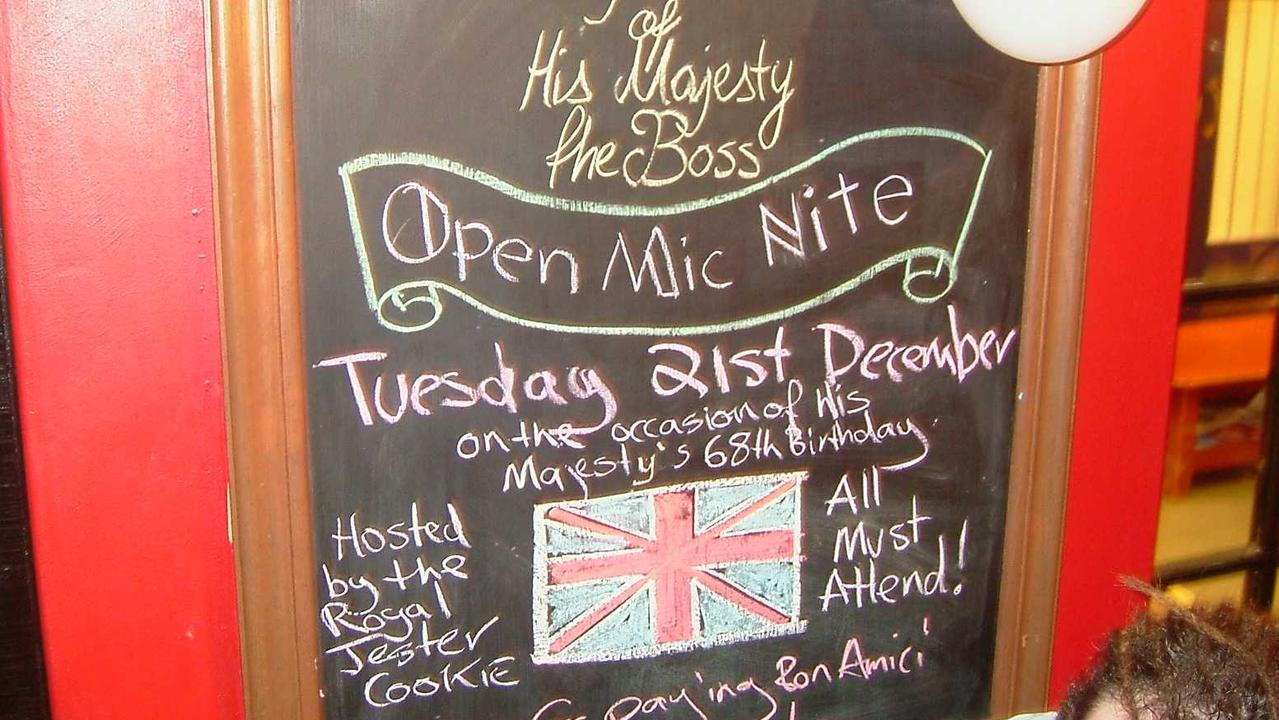 of
His Majesty
the Boss
Open Mic Nite
Tuesday 21st December
on the occasion of his
Majesty's 68th Birthday.
Hosted
by the
Royal
Jester
COOKIE
All
Must
Attend!
paying Bon Amici